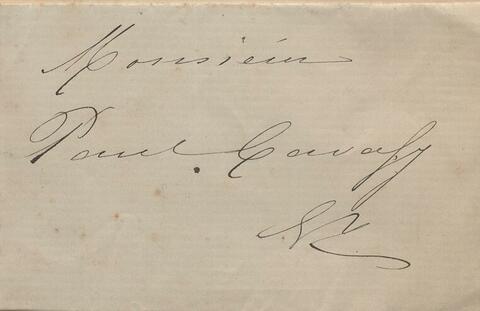 Monsieur
Paul. Cavafy